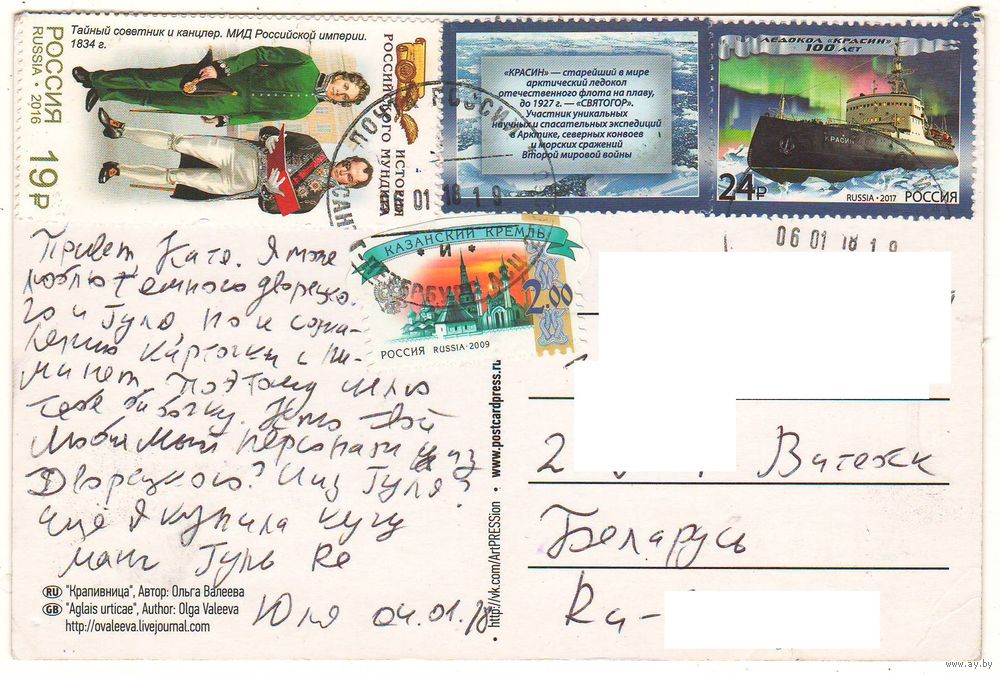 Тайный советник и канцлер. МИД Российской империи.
1834 г.
РОССИЯ
RUSSIA • 2016
19₽
ИСТОРИЯ
РОССИЙСКОГО МУНДИРА
«КРАСИН» — старейший в мире
арктический ледокол
отечественного флота на плаву,
до 1927 г. — «СВЯТОГОР».
Участник уникальных
научных и спасательных экспедиций
в Арктике, северных конвоев
и морских сражений
Второй мировой войны
ЛЕДОКОЛ «КРАСИН»
100 ЛЕТ
КРАСИН
24₽
RUSSIA • 2017 РОССИЯ
РОССИЯ
01 18 19
06 01 18 19
КАЗАНСКИЙ КРЕМЛЬ
2.00
РОССИЯ RUSSIA • 2009
Привет Катя. Я тоже
люблю Тёмного дворецко
го и Гуля, но к сожа-
лению карточки с ни-
ми нет, поэтому шлю
тебе бабочку. Кто твой
любимый персонаж из
Дворецкого? И из Гуля?
Ещё я купила кучу
манг Гуль Re
Юля 04.01.18
RU "Крапивница", Автор: Ольга Валеева
GB "Aglais urticae", Author: Olga Valeeva
http://ovaleeva.livejournal.com
http://vk.com/ArtPRESSion • www.postcardpress.ru
2 Витебск
Беларусь
Ru-
www.ay.by